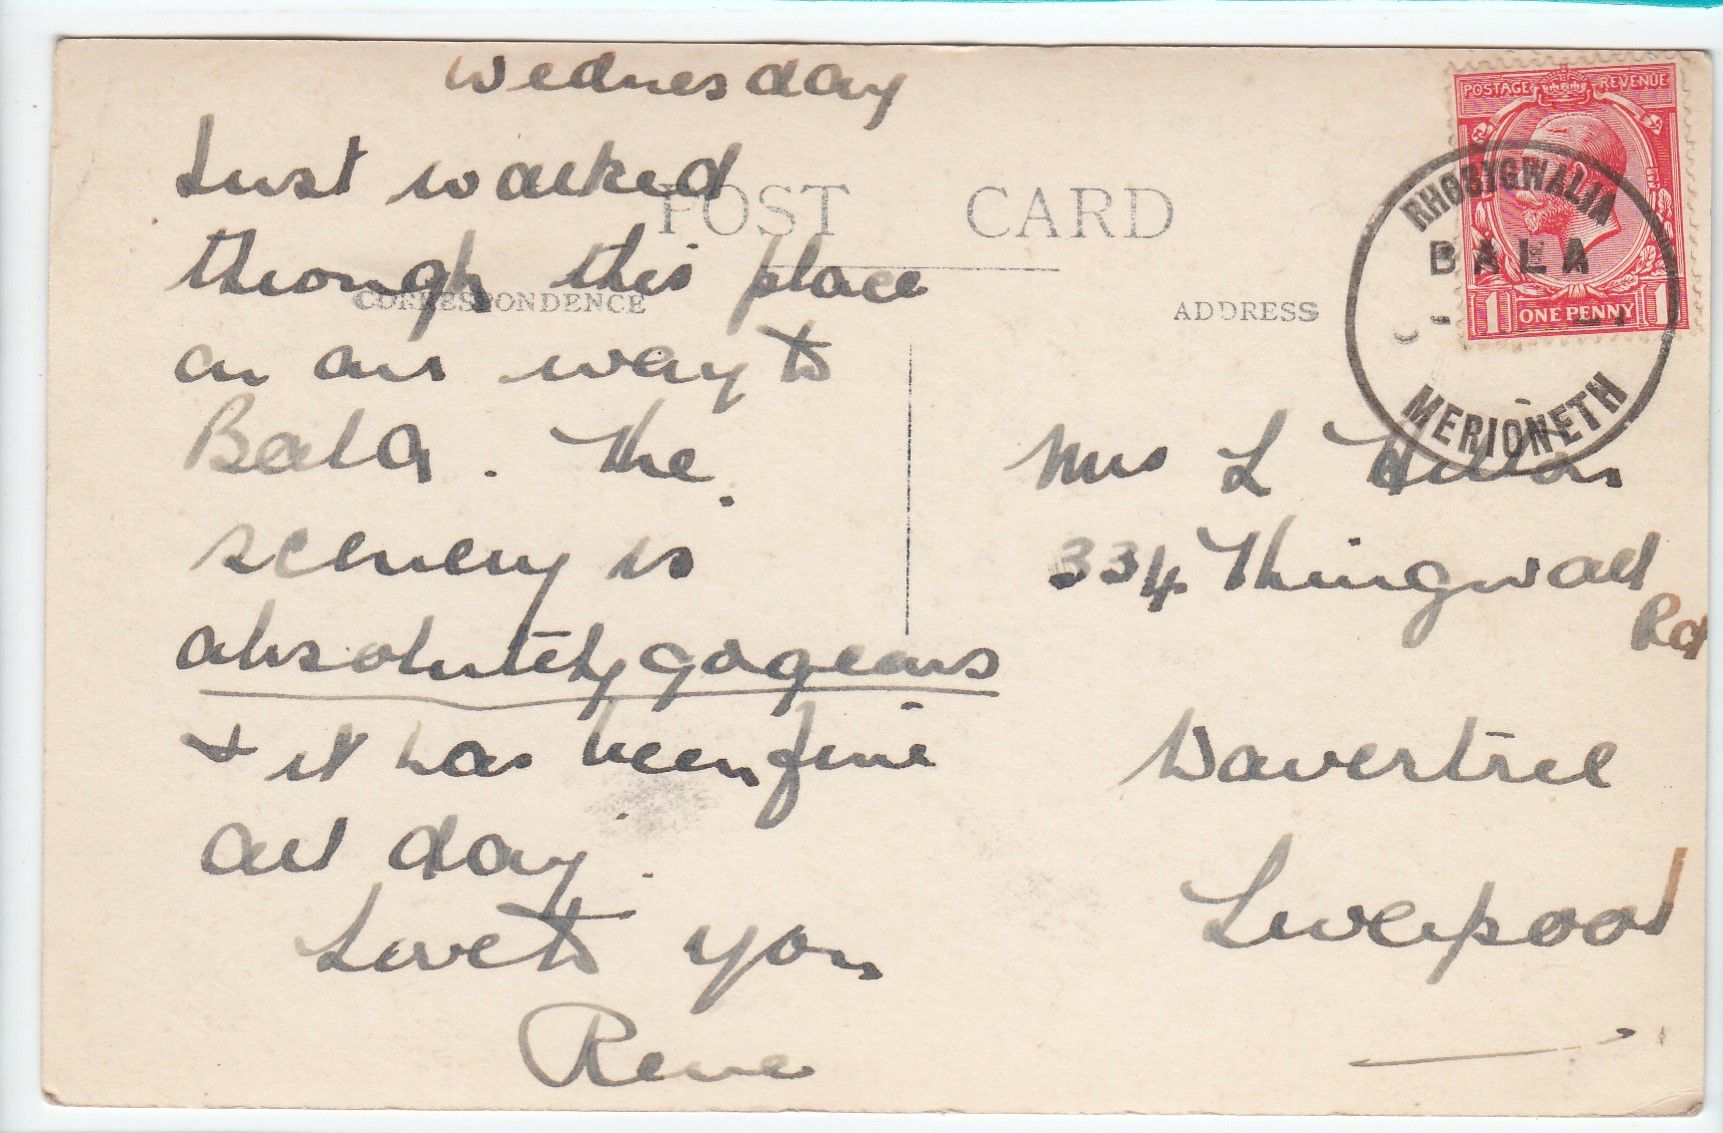 Wednesday
Just walked
through this place
on our way to
Bala. The
scenery is
absolutely gogeous
& it has been fine
all day.
Love to you
Rene
POST CARD
CORRESPONDENCE
ADDRESS
POSTAGE REVENUE
1 ONE PENNY 1
RHOBIGWALIA
BALA
MERIONETH
Mrs L
334 Thingwall
Rd
Wavertree
Liverpool